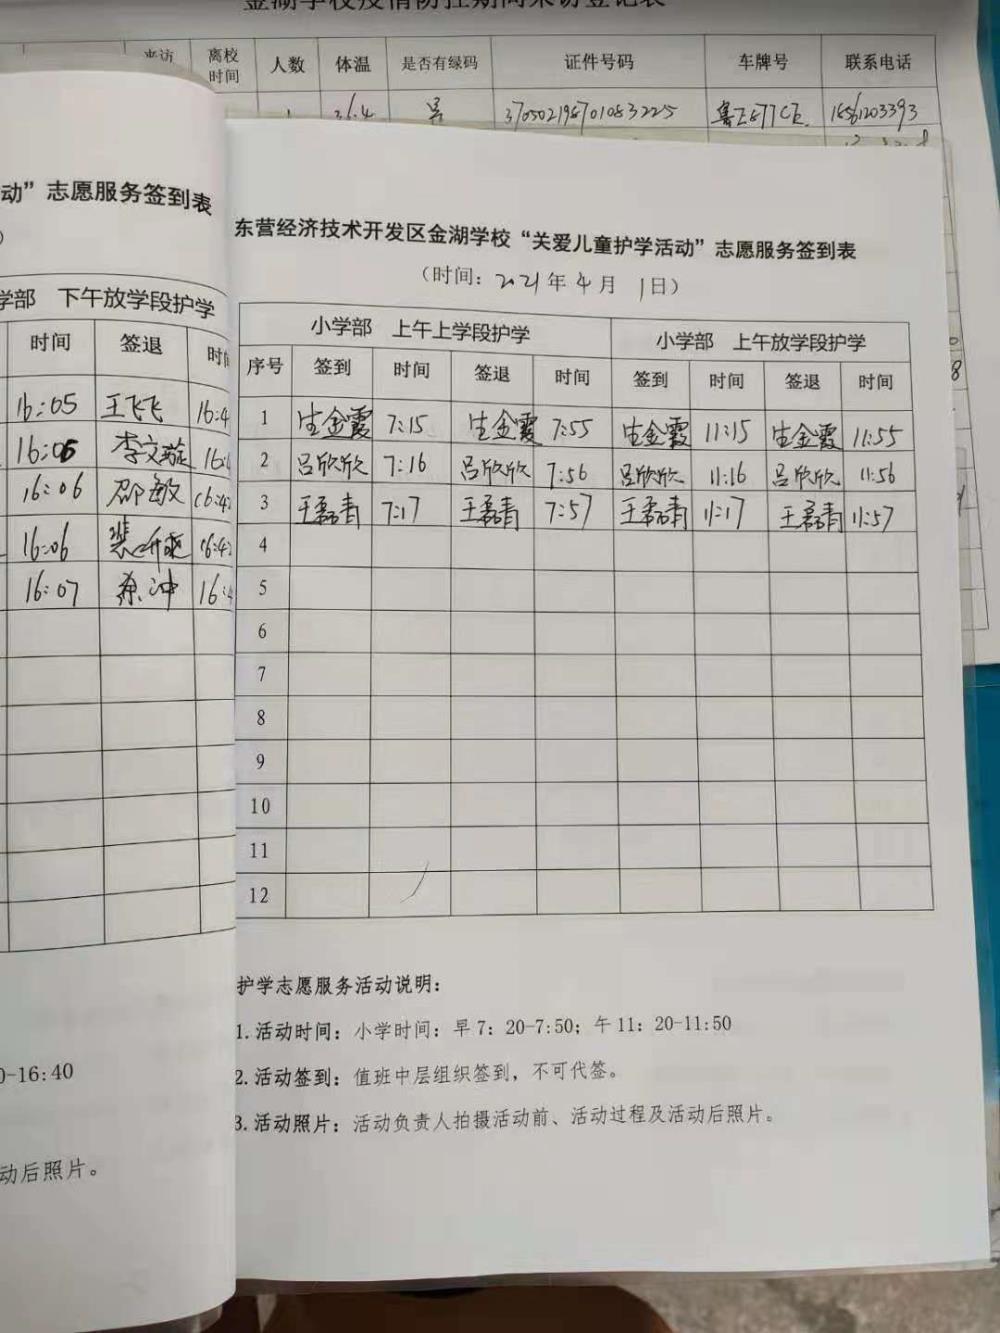 金湖学校疫情防控期间来访登记表
来访 离校时间 人数 体温 是否有绿码 证件号码 车牌号 联系电话
36.4 是
动”志愿服务签到表
学部 下午放学段护学
时间 签退 时间
16:05 王飞飞 16:4
16:06 李文璇 16:4
16:06 邵敏 16:4
16:06 16:4
16:07 16:4
0-16:40
动后照片。
东营经济技术开发区金湖学校“关爱儿童护学活动”志愿服务签到表
（时间：2021年4月1日）
小学部 上午上学段护学 小学部 上午放学段护学
序号 签到 时间 签退 时间 签到 时间 签退 时间
1 生金霞 7:15 生金霞 7:55 生金霞 11:15 生金霞 11:55
2 吕欣欣 7:16 吕欣欣 7:56 吕欣欣 11:16 吕欣欣 11:56
3 王磊青 7:17 王磊青 7:57 王磊青 11:17 王磊青 11:57
4
5
6
7
8
9
10
11
12
护学志愿服务活动说明：
1.活动时间：小学时间：早7：20-7:50；午11：20-11:50
2.活动签到：值班中层组织签到，不可代签。
3.活动照片：活动负责人拍摄活动前、活动过程及活动后照片。